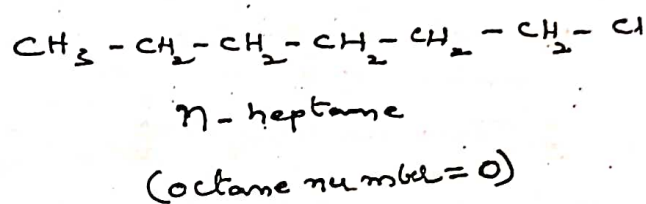 CH₃ - CH₂ - CH₂ - CH₂ - CH₂ - CH₂ - Cl
n - heptane
(octane number = 0)